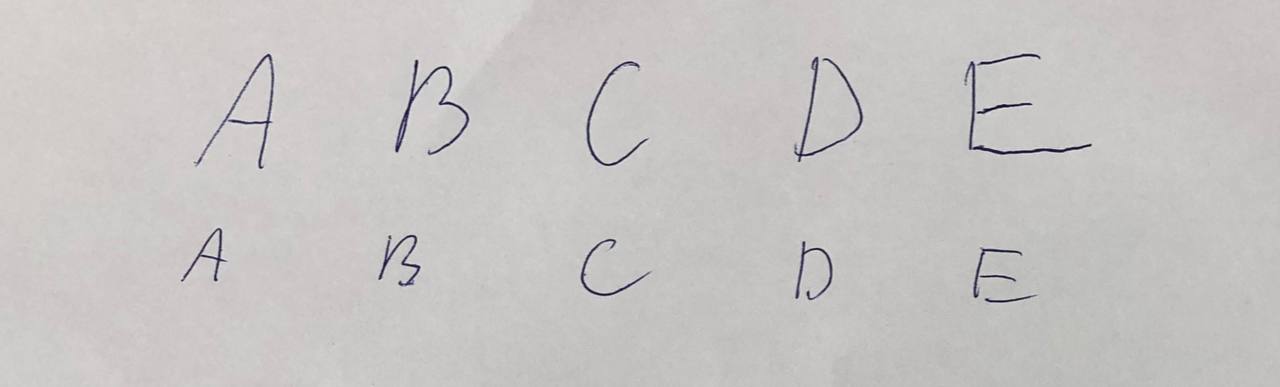 A B C D E
A B C D E